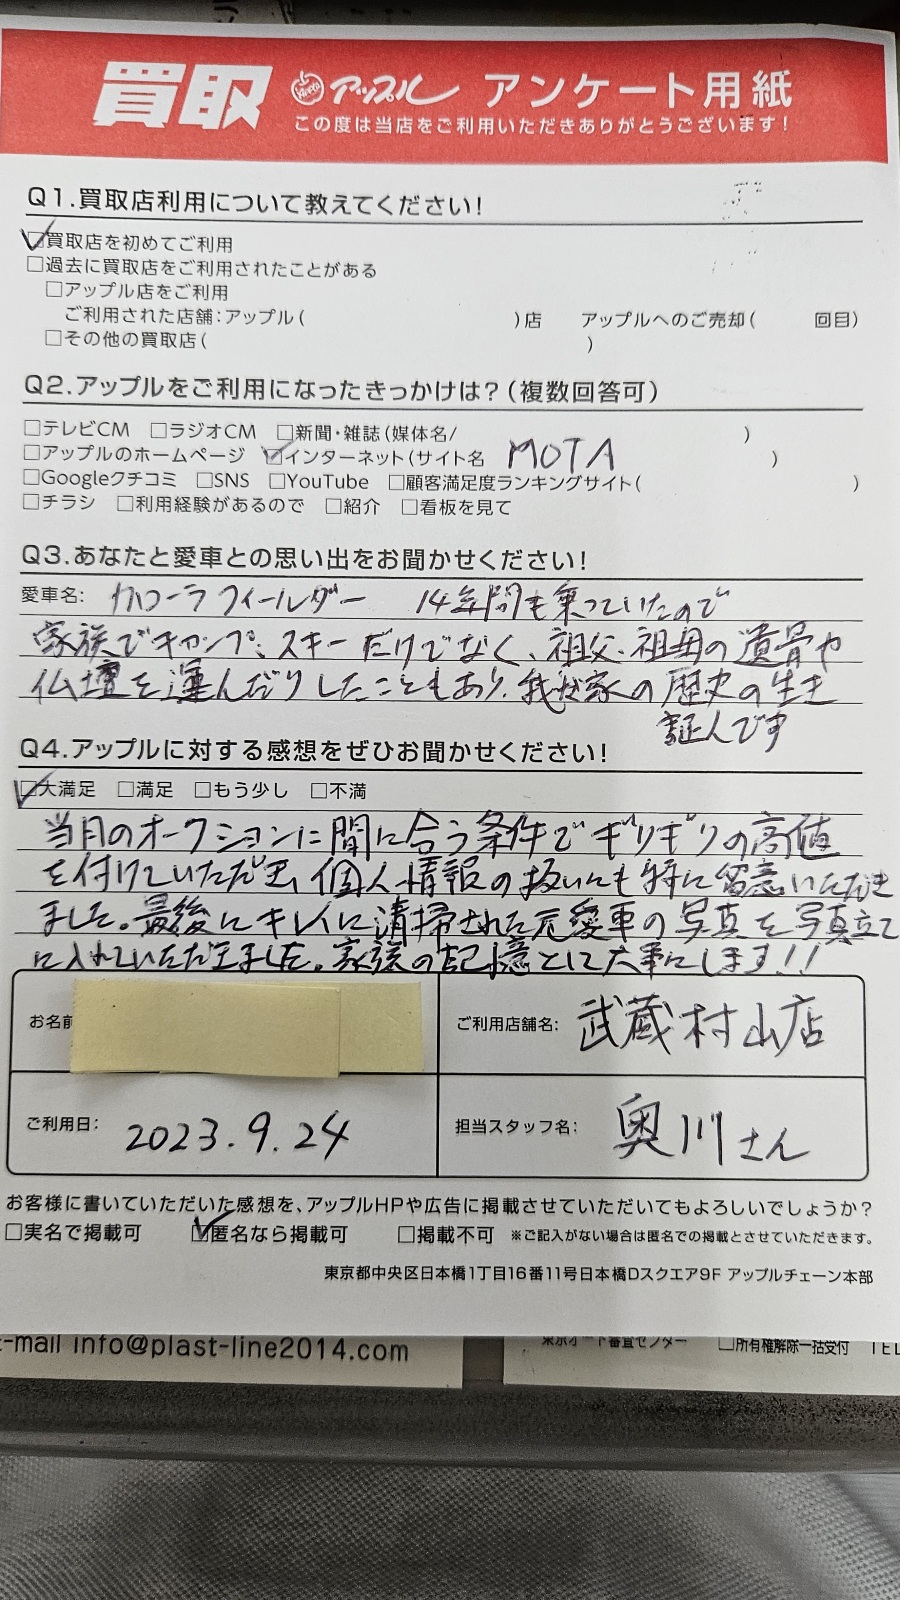 買取 アップル アンケート用紙
この度は当店をご利用いただきありがとうございます!
Q1.買取店利用について教えてください!
☑買取店を初めてご利用
□過去に買取店をご利用されたことがある
□アップル店をご利用
ご利用された店舗:アップル( )店 アップルへのご売却( 回目)
□その他の買取店( )
Q2.アップルをご利用になったきっかけは?(複数回答可)
□テレビCM □ラジオCM □新聞・雑誌(媒体名/ )
□アップルのホームページ ☑インターネット(サイト名 MOTA )
□Googleクチコミ □SNS □YouTube □顧客満足度ランキングサイト( )
□チラシ □利用経験があるので □紹介 □看板を見て
Q3.あなたと愛車との思い出をお聞かせください!
愛車名: カローラフィールダー 14年間も乗っていたので
家族でキャンプ、スキーだけでなく、祖父・祖母の遺骨や
仏壇を運んだりしたこともあり、我が家の歴史の生き
証人です
Q4.アップルに対する感想をぜひお聞かせください!
☑大満足 □満足 □もう少し □不満
当月のオークションに間に合う条件でギリギリの高値
を付けていただき、個人情報の扱いにも特に留意いただき
ました。最後にキレイに清掃された元愛車の写真を写真立て
に入れていただきました。家族の記憶として大事にします!!
お名前
ご利用店舗名: 武蔵村山店
ご利用日: 2023.9.24
担当スタッフ名: 奥川さん
お客様に書いていただいた感想を、アップルHPや広告に掲載させていただいてもよろしいでしょうか?
□実名で掲載可 ☑匿名なら掲載可 □掲載不可 ※ご記入がない場合は匿名での掲載とさせていただきます。
東京都中央区日本橋1丁目16番11号日本橋Dスクエア9F アップルチェーン本部
-mail info@plast-line2014.com
東京オート審査センター □所有権解除一括受付 TEL